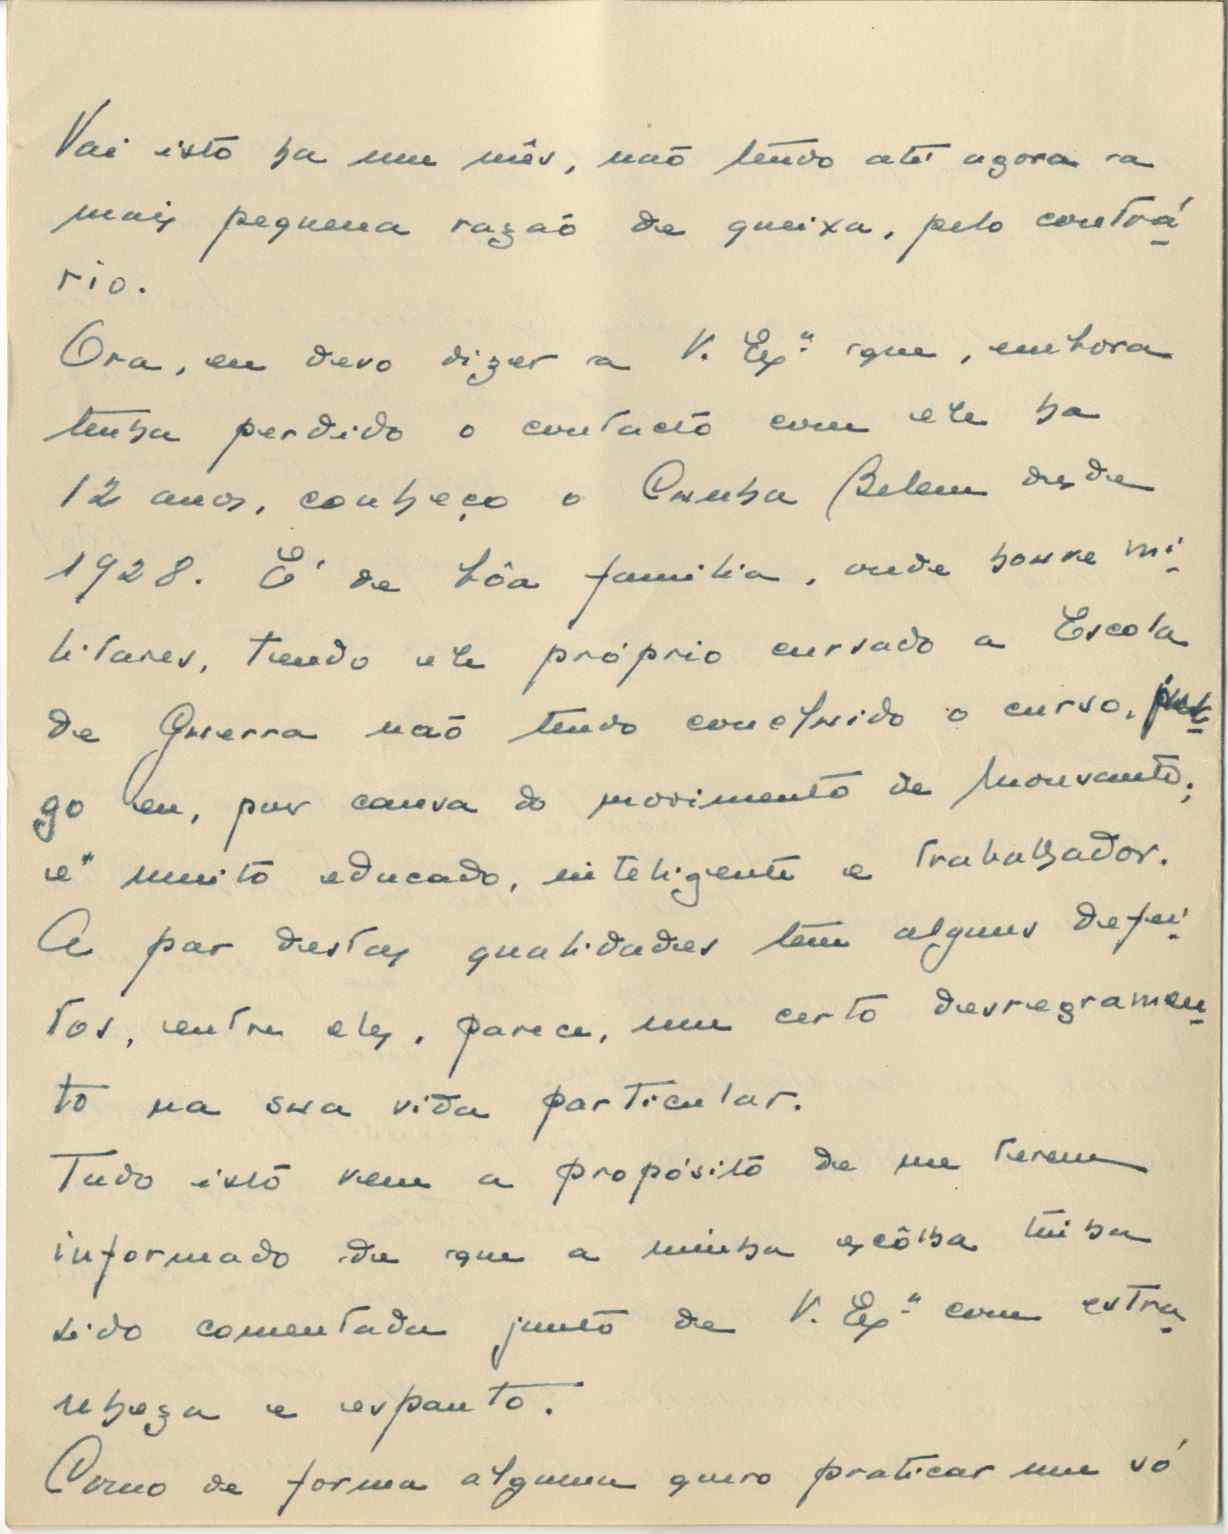 Vai isto ha um mês, não tendo até agora a
mais pequena razão de queixa, pelo contrá-
rio.
Ora, eu devo dizer a V. Exª que, embora
tenha perdido o contacto com ele ha
12 anos, conheço o Cunha Belem desde
1928. É de bôa familia, onde houve mi-
litares, tendo ele próprio cursado a Escola
de Guerra não tendo concluido o curso, jul-
go eu, por causa do movimento de Monsanto;
é muito educado, inteligente e trabalhador.
A par destas qualidades tem alguns defei-
tos, entre eles, parece, um certo desregramen-
to na sua vida particular.
Tudo isto vem a propósito de me terem
informado de que a minha escôlha tinha
sido comentada junto de V. Exª com estra-
nheza e espanto.
Como de forma alguma quero praticar um só